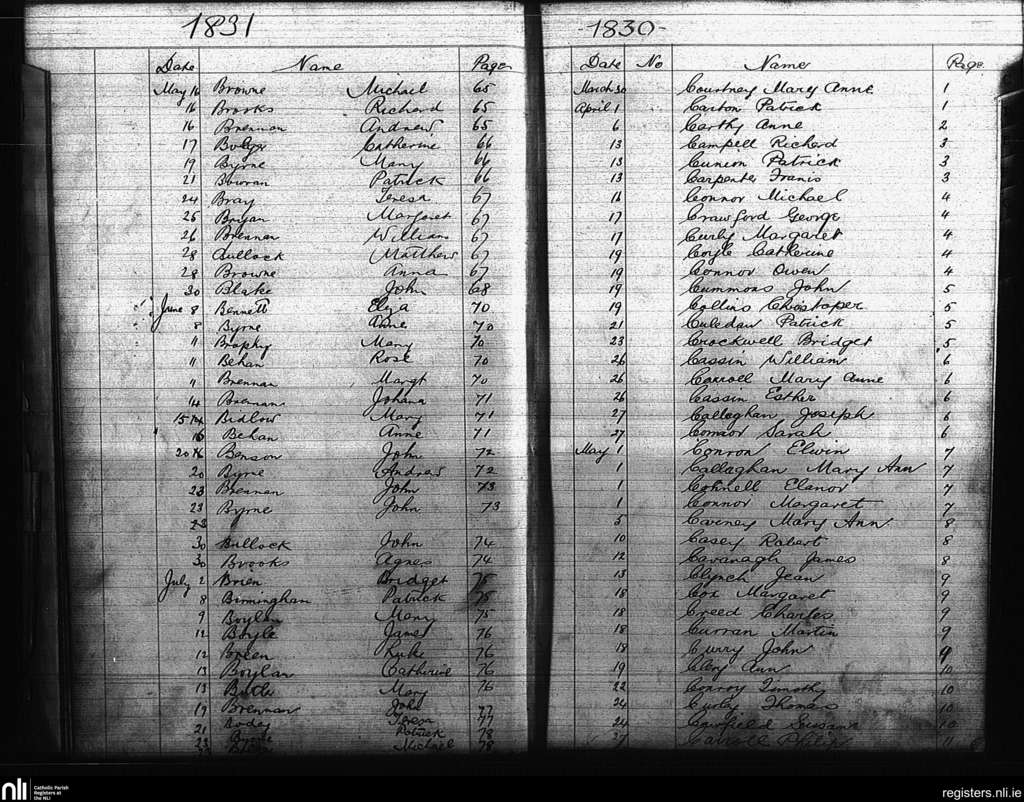 1831
Date Name Page
May 16 Browne Michael 65
16 Brooks Richard 65
16 Brennan Andrew 65
17 Bolger Catherine 66
19 Byrne Mary 66
21 Bowran Patrick 66
24 Bray Teresa 67
25 Bryan Margaret 67
26 Brennan William 67
28 Bullock Matthew 67
28 Browne Anna 67
30 Blake John 68
June 8 Bennett Eliza 70
8 Byrne Anne 70
11 Brophy Mary 70
Behan Rose 70
11 Brennan Margt 70
14 Brennan Johana 71
15 Bidlow Mary 71
16 Behan Anne 71
20 Benson John 72
20 Byrne Andrew 72
23 Brennan John 73
23 Byrne John 73
23
30 Bullock John 74
30 Brooks Agnes 74
July 2 Brien Bridget 75
8 Birmingham Patrick 75
9 Boylan Mary 75
12 Boyle James 76
12 Breen Luke 76
13 Boylan Catherine 76
13 Butler Mary 76
19 Brennan John 77
21 Teresa 77
23 Patrick 78
Michael 78
-1830-
Date No Name Page
March 30 Courtney Mary Anne 1
April 1 Carton Patrick 1
6 Carthy Anne 2
13 Campell Richard 3
13 Cunion Patrick 3
13 Carpenter Franis 3
16 Connor Michael 4
17 Crawford George 4
17 Curly Margaret 4
19 Coyle Catherine 4
19 Connor Owen 4
19 Cummons John 5
19 Collins Christoper 5
21 Patrick 5
23 Crockwell Bridget 5
26 Cassin William 6
26 Carroll Mary Anne 6
26 Cassin Esther 6
27 Callaghan Joseph 6
27 Connor Sarah 6
May 1 Conron Elwin 7
1 Callaghan Mary Ann 7
1 Connell Elanor 7
1 Connor Margaret 7
5 Caveney Mary Ann 8
10 Casey Robert 8
12 Cavanagh James 8
13 Clynch Jean 9
18 Cox Margaret 9
18 Creed Charles 9
18 Curran Martin 9
18 Curry John 9
19 Clery Ann 10
22 Conroy Timothy 10
24 Curley Thomas 10
24 Canfield Susanna 10
27 Carroll Philip 11
nli Catholic Parish
Registers at
the NLI
registers.nli.ie